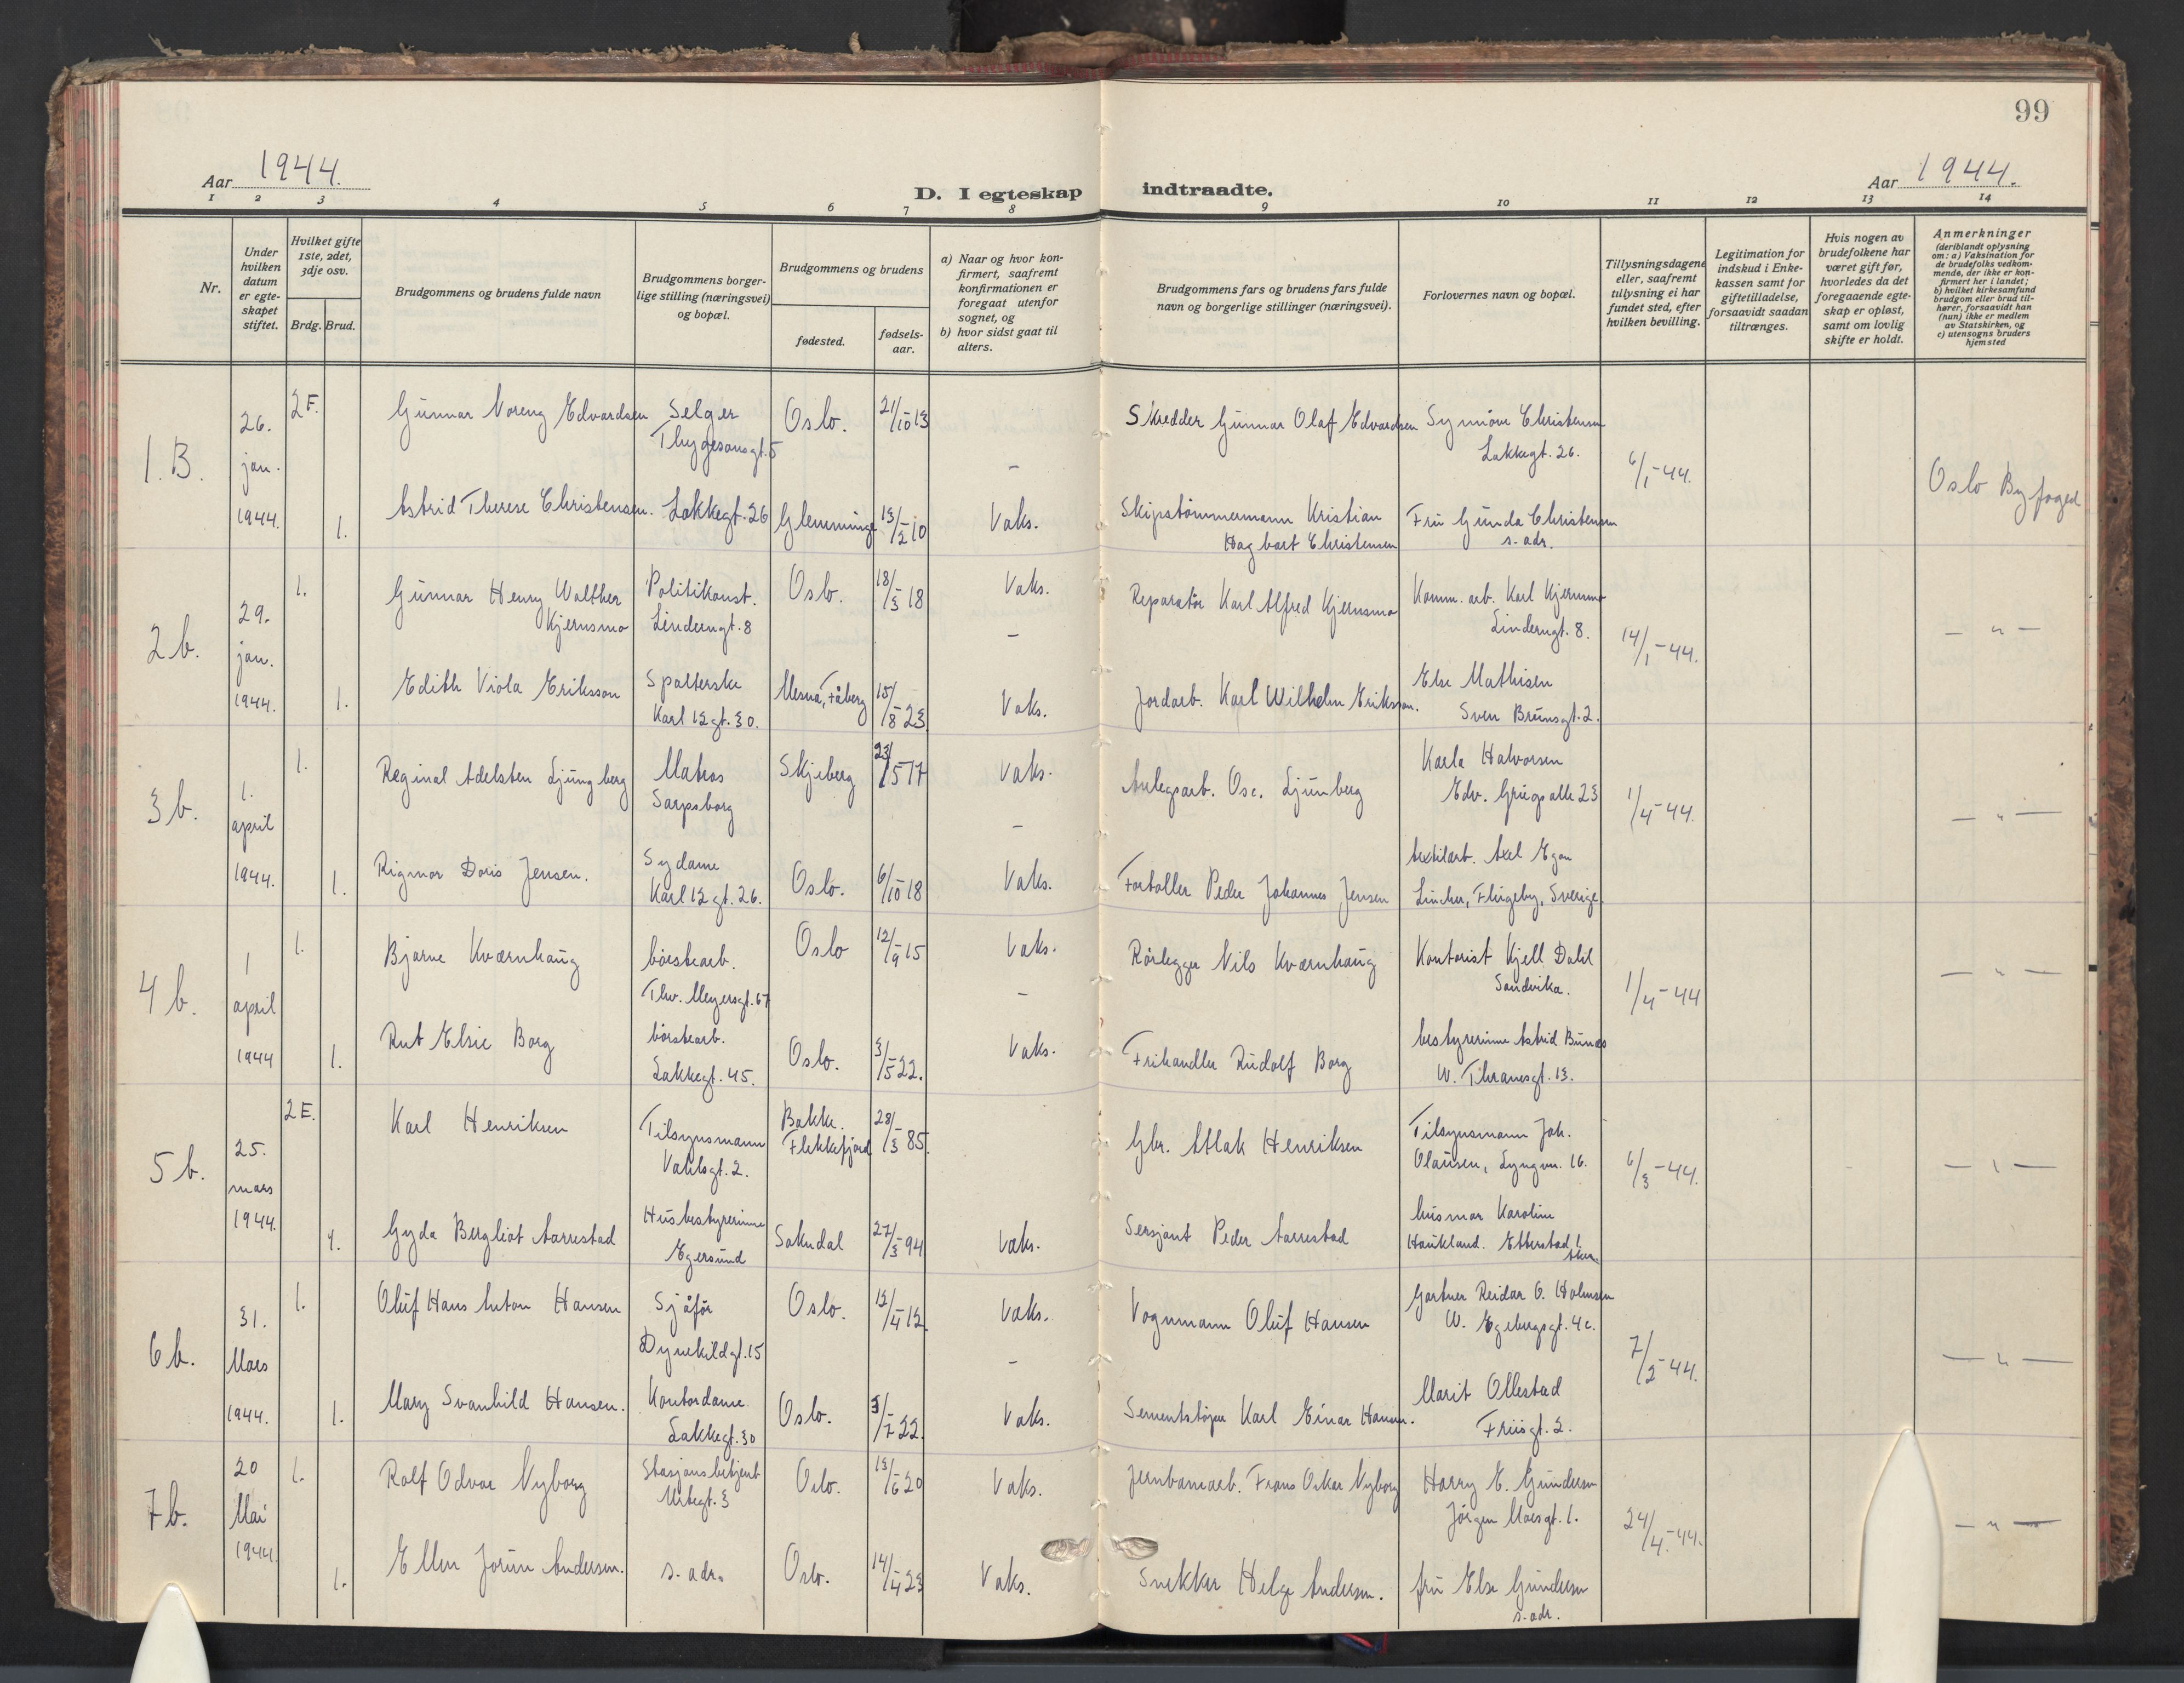 99
Aar 1944.
D. I egteskap indtraadte.
Aar 1944.
1 2 3 4 5 6 7 8 9 10 11 12 13 14
Nr.
Under hvilken datum er egte-skapet stiftet.
Hvilket gifte 1ste, 2det, 3dje osv.
Brdg. Brud.
Brudgommens og brudens fulde navn
Brudgommens borger-lige stilling (næringsvei) og bopæl.
Brudgommens og brudens
fødested.
fødsels-aar.
a) Naar og hvor kon-firmert, saafremt konfirmationen er foregaat utenfor sognet, og
b) hvor sidst gaat til alters.
Brudgommens fars og brudens fars fulde navn og borgerlige stillinger (næringsvei).
Forlovernes navn og bopæl.
Tillysningsdagene eller, saafremt tillysning ei har fundet sted, efter hvilken bevilling.
Legitimation for indskud i Enke-kassen samt for giftetilladelse, forsaavidt saadan tiltrænges.
Hvis nogen av brudefolkene har været gift før, hvorledes da det foregaaende egte-skap er opløst, samt om lovlig skifte er holdt.
Anmerkninger (deriblandt oplysning om: a) Vaksination for de brudefolks vedkom-mende, der ikke er kon-firmert her i landet; b) hvilket kirkesamfund brudgom eller brud til-hører, forsaavidt han (hun) ikke er medlem av Statskirken, og c) utensogns bruders hjemsted
1.B. 26. jan. 1944.
2 F. Gunnar Noreng Edvardsen Selger Thygesonsgt. 5 Oslo. 21/10-13 Skredder Gunnar Olaf Edvardsen Synnöve Christensen Lakkegt. 26. 6/1-44. Oslo Byfoged
1. Astrid Therese Christensen. Lakkegt. 26 Glemminge 13/2-10 Vaks. Skipstömmermann Kristian Hagbart Christensen Fru Gunda Christensen s. adr.
2 b. 29. jan. 1944.
1. Gunnar Henry Walther Kjernsmo Politikonst. Linderngt. 8 Oslo. 18/3-18 Vaks. Reparatör Karl Alfred Kjernsmo Komm. arb. Karl Kjernsmo Linderngt. 8. 14/1-44. — " —
1. Edith Viola Eriksson Spalterske Karl 12 gt. 30. Mesna, Fåberg 15/8-23. Vaks. Jordarb. Karl Wilhelm Eriksson. Else Mathisen Sven Brunsgt. 2.
3 b. 1. april 1944.
1. Reginal Adelsten Ljungberg Matros Sarpsborg Skjeberg 23/5-17 Vaks. Anlegsarb. Osc. Ljunberg Karla Halvorsen Edv. Griegs alle 23 1/4-44. — " —
1. Rigmor Doris Jensen. Sydame Karl 12 gt. 26. Oslo. 6/10-18 Vaks. Fortoller Peder Johannes Jensen textilarb. Axel Egon Sverige
4 b. 1 april 1944
1. Bjarne Kværnhaug börstearb. Thv. Meyersgt. 67 Oslo 12/9-15 Vaks. Rörlegger Nils Kværnhaug Kontorist Kjell Dahl Sandvika. 1/4-44 — " —
1. Rut Elsie Borg börstearb. Lakkegt. 45. Oslo. 3/5-22. Vaks. Frihandler Rudolf Borg bestyrerinne Astrid Bunæs W. Thranesgt. 13.
5 b. 25. mars 1944.
2 E. Karl Henriksen Tilsynsmann Vahlsgt. 2. Bakke. Flekkefjord 28/3-85. Gbr. Atlak Henriksen Tilsynsmann Joh. Olausen, Lyngvn. 16. 6/3-44. — " —
1. Gyda Bergliot Aarrestad Husbestyrerinne Egersund Sokndal 27/3-94 Vaks. Sersjant Peder Aarrestad husmor Karoline Haukland. Etterstad 1. Aker
6 b. 31. Mars 1944.
1. Oluf Hans Anton Hansen Sjåför Dynekildgt. 15 Oslo. 12/4-12. Vaks. Vognmann Oluf Hansen Gartner Reidar O. Holmsen W. Egebergsgt. 4c. 7/2-44. — " —
1. Mary Svanhild Hansen. Kontordame Lakkegt. 30 Oslo. 3/7-22. Vaks. Sementstöper Karl Einar Hansen. Marit Ollestad Friisgt. 2.
7 b. 20 Mai 1944.
1. Rolf Odvar Nyborg Stasjonsbetjent Urtegt. 3 Oslo. 13/6-20 Vaks. Jernbanearb. Frans Oskar Nyborg Harry E. Gundersen Jörgen Moesgt. 1. 24/4-44. — " —
1. Ellen Jorun Andersen. s. adr. Oslo. 14/4-23 Vaks. Snekker Helge Andersen. fru Else Gundersen s. adr.